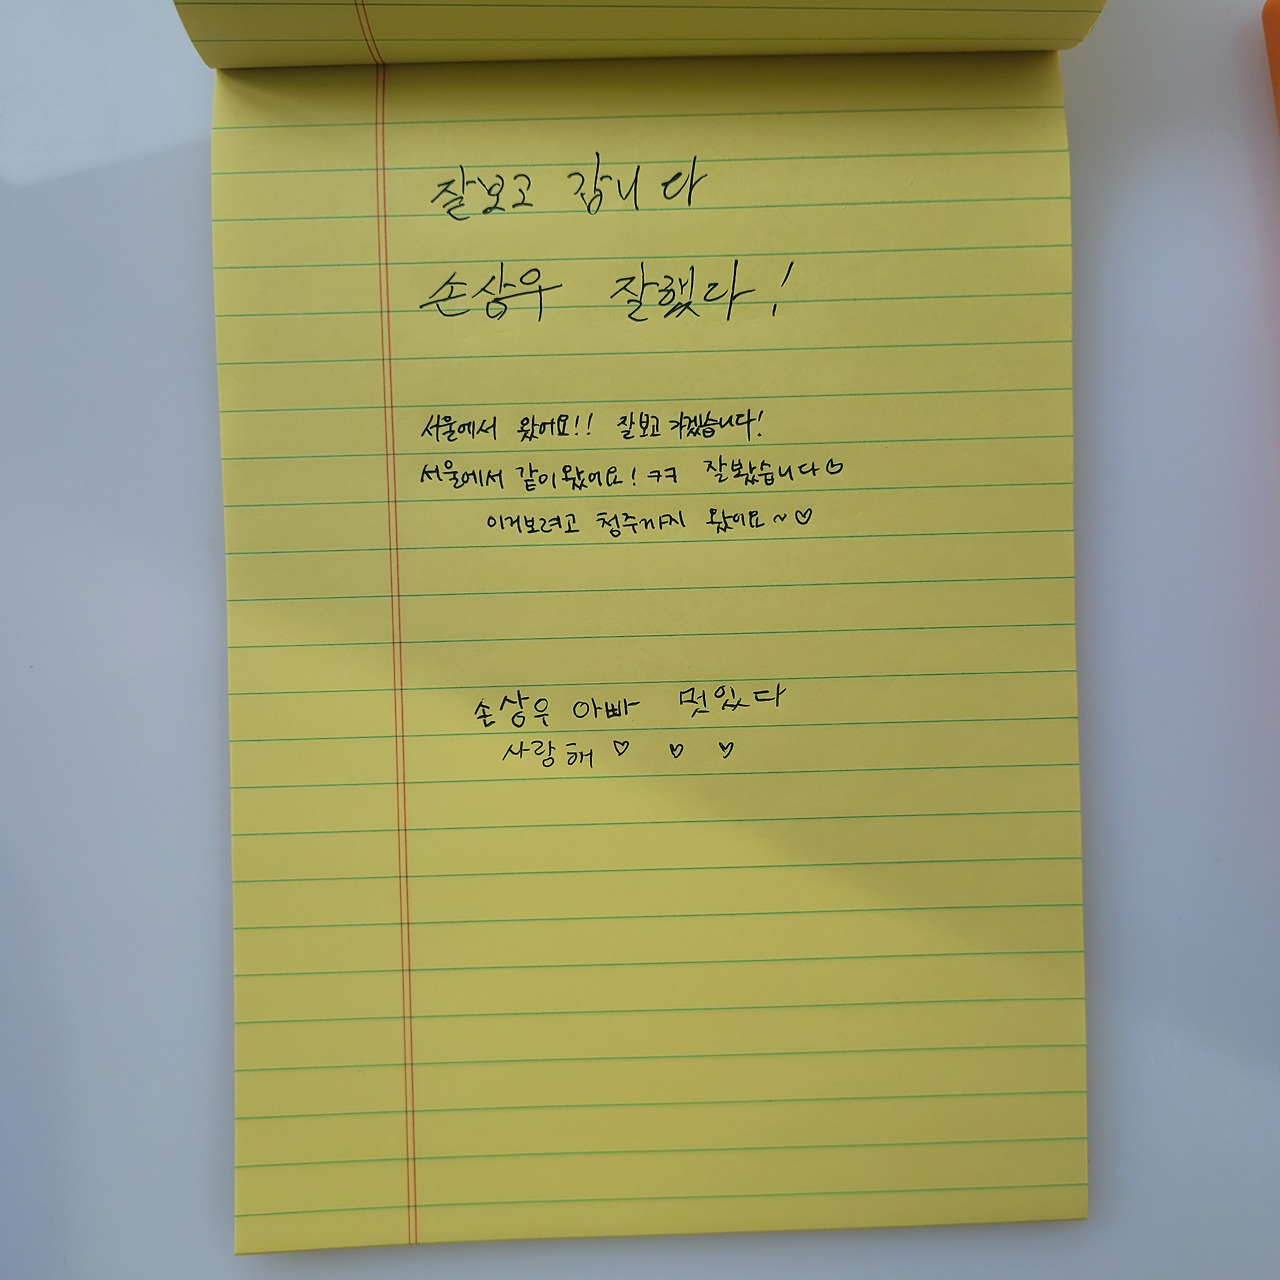 잘보고 갑니다
손상우 잘했다!
서울에서 왔어요!! 잘보고 가겠습니다!
서울에서 같이왔어요! ㅋㅋ 잘봤습니다♡
이거보려고 청주까지 왔어요~♡
손상우 아빠 멋있다
사랑해 ♡ ♡ ♡